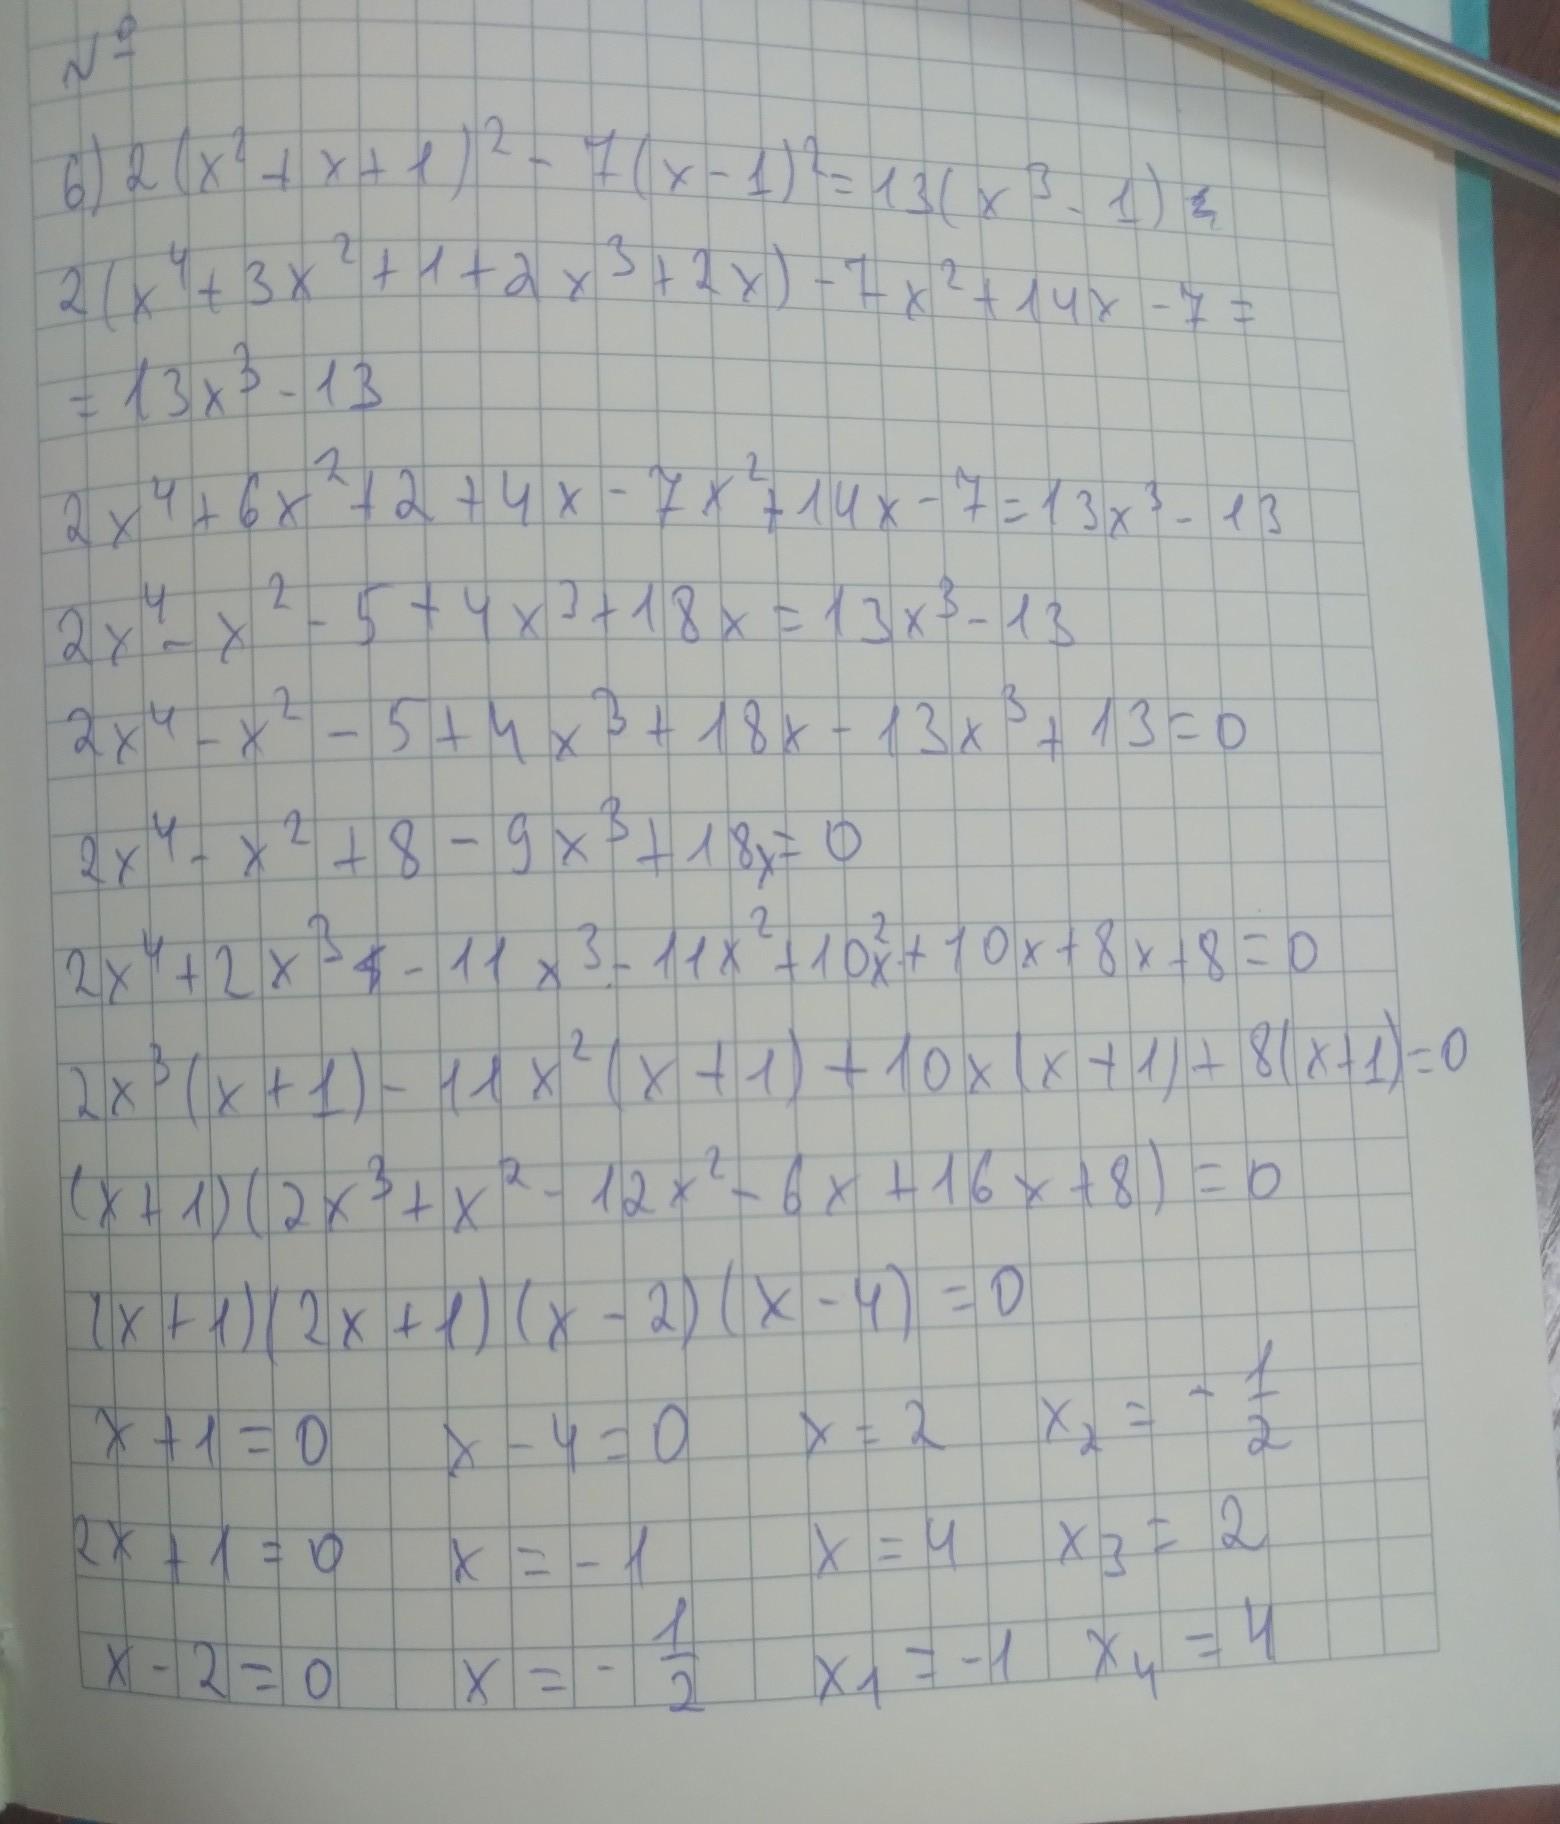 №
б) 2(x² + x + 1)² - 7(x - 1)² = 13(x³ - 1)
2(x⁴ + 3x² + 1 + 2x³ + 2x) - 7x² + 14x - 7 =
= 13x³ - 13
2x⁴ + 6x² + 2 + 4x - 7x² + 14x - 7 = 13x³ - 13
2x⁴ - x² - 5 + 4x³ + 18x = 13x³ - 13
2x⁴ - x² - 5 + 4x³ + 18x - 13x³ + 13 = 0
2x⁴ - x² + 8 - 9x³ + 18x = 0
2x⁴ + 2x³ - 11x³ - 11x² + 10x² + 10x + 8x + 8 = 0
2x³(x + 1) - 11x²(x + 1) + 10x(x + 1) + 8(x + 1) = 0
(x + 1)(2x³ + x² - 12x² - 6x + 16x + 8) = 0
(x + 1)(2x + 1)(x - 2)(x - 4) = 0
x + 1 = 0 x - 4 = 0 x = 2 x₂ = - 1/2
2x + 1 = 0 x = - 1 x = 4 x₃ = 2
x - 2 = 0 x = - 1/2 x₁ = -1 x₄ = 4